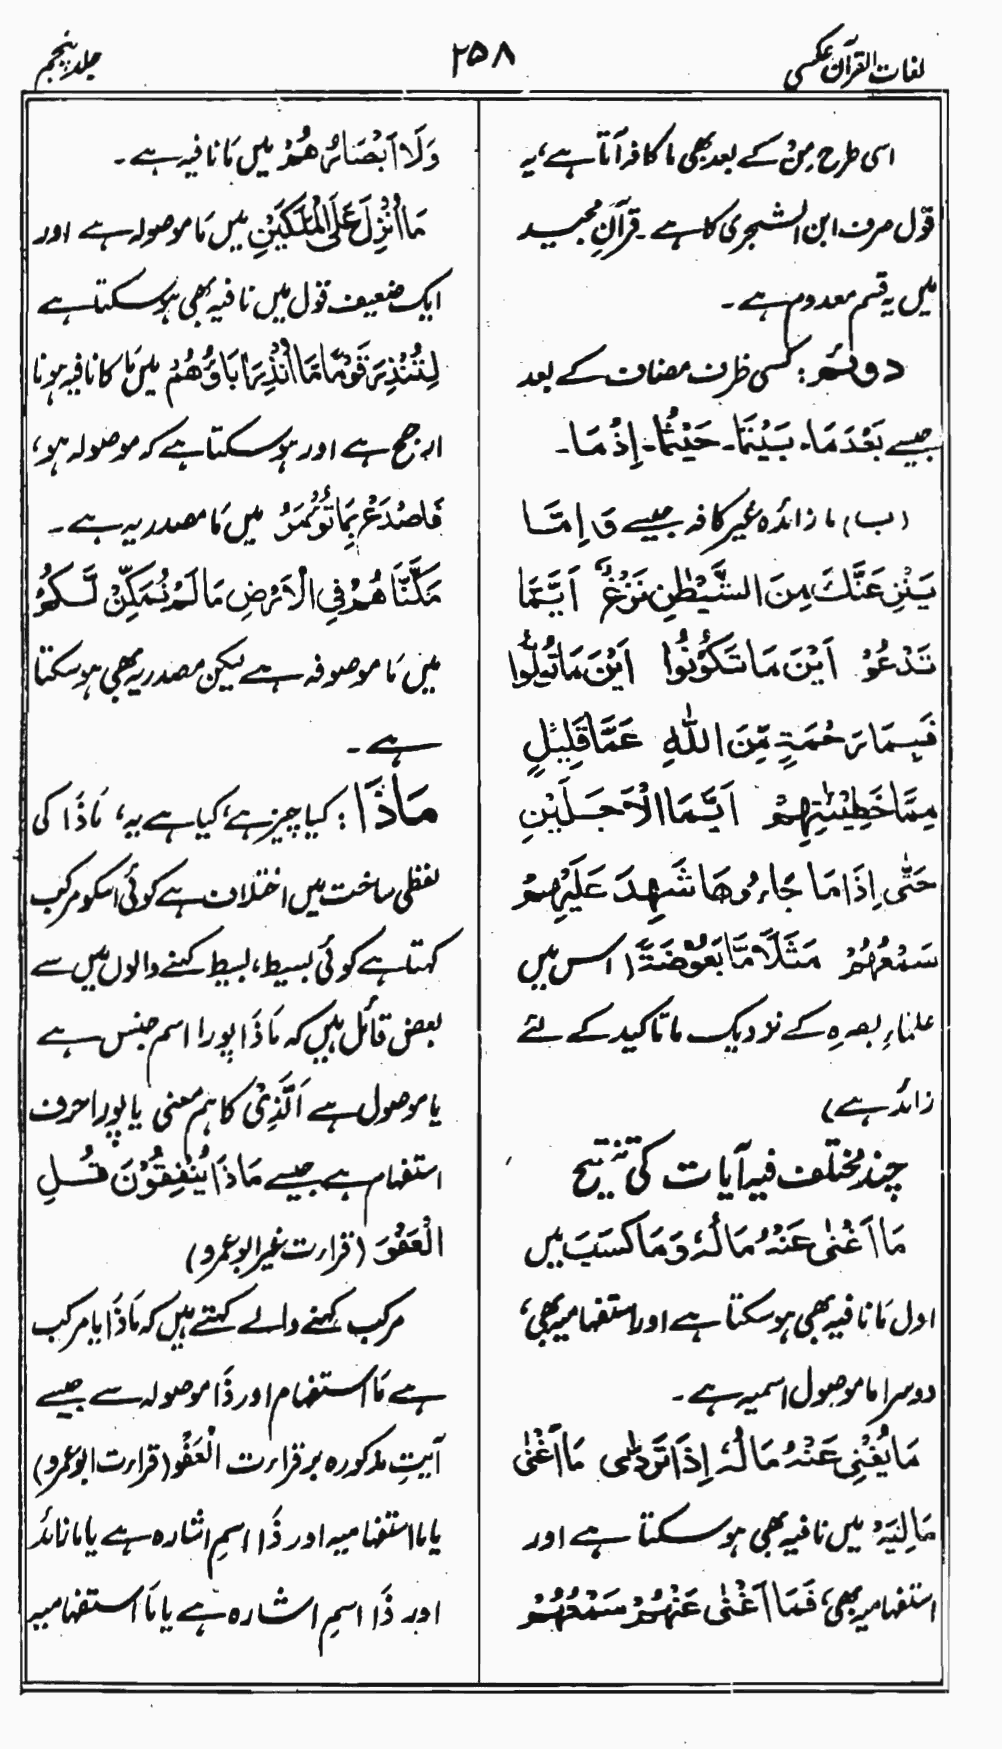 لغات القرآن عکسی
۲۵۸
جلد پنجم
اسی طرح مِنْ کے بعد بھی ما کافہ آتا ہے، یہ
قول صرف ابن الشجری کا ہے ۔ قرآنِ مجید
میں یہ قسم معدوم ہے ۔
دوئم : کسی ظرف مضاف کے بعد
جیسے بَعْدَ مَا ۔ بَیْنَمَا ۔ حَیْثُمَا ۔ اِذْ مَا ۔
(ب) ما زائدہ غیر کافہ جیسے وَ اِمَّا
یَنْزِغَنَّكَ مِنَ الشَّیْطٰنِ نَزْغٌ اَیًّامَّا
تَدْعُوْ اَیْنَ مَا تَكُوْنُوْا اَیْنَ مَا تُوَلُّوْا
فَبِمَا رَحْمَةٍ مِّنَ اللّٰهِ عَمَّا قَلِیْلٍ
مِمَّا خَطِیْئٰتِهِمْ اَیَّمَا الْاَجَلَیْنِ
حَتّٰى اِذَا مَا جَاءُوْهَا شَهِدَ عَلَیْهِمْ
سَمْعُهُمْ مَثَلًا مَّا بَعُوْضَةً ( اس میں
علماء بصرہ کے نزدیک ما تاکید کے لئے
زائد ہے )
چند مختلف فیہ آیات کی تنقیح
مَا اَغْنٰى عَنْهُ مَالُهٗ وَمَا كَسَبَ میں
اول مَا نافیہ بھی ہو سکتا ہے اور استفہامیہ بھی ،
دوسرا ما موصول اسمیہ ہے ۔
مَا یُغْنِیْ عَنْهُ مَالُهٗ اِذَا تَرَدّٰى مَا اَغْنٰى
مَالِیَهْ میں نافیہ بھی ہو سکتا ہے اور
استفہامیہ بھی ، فَمَا اَغْنٰى عَنْهُمْ سَمْعُهُمْ
وَلَا اَبْصَارُهُمْ میں مَا نافیہ ہے ۔
مَا اُنْزِلَ عَلَى الْمَلَكَیْنِ میں مَا موصولہ ہے اور
ایک ضعیف قول میں نافیہ بھی ہو سکتا ہے
لِتُنْذِرَ قَوْمًا مَّا اُنْذِرَ اٰبَاؤُهُمْ میں مَا کا نافیہ ہونا
ارجح ہے اور ہو سکتا ہے کہ موصولہ ہو ،
فَاصْدَعْ بِمَا تُؤْمَرُ میں مَا مصدریہ ہے ۔
مَكَّنَّا هُمْ فِی الْاَرْضِ مَا لَمْ نُمَكِّنْ لَّكُمْ
میں مَا موصوفہ ہے لیکن مصدریہ بھی ہو سکتا
ہے ۔
مَاذَا : کیا چیز ہے ، کیا ہے یہ ، مَاذَا کی
لفظی ساخت میں اختلاف ہے کوئی اسکو مرکب
کہتا ہے کوئی بسیط ، بسیط کہنے والوں میں سے
بعض قائل ہیں کہ مَاذَا پورا اسم جنس ہے
یا موصول ہے اَلَّذِیْ کا ہم معنی یا پورا حرف
استفہام ہے جیسے مَاذَا یُنْفِقُوْنَ قُلِ
الْعَفْوَ ( قراءت غیر ابو عمرو )
مرکب کہنے والے کہتے ہیں کہ مَاذَا یا مرکب
ہے مَا استفہام اور ذَا موصولہ سے جیسے
آیتِ مذکورہ بر قراءت الْعَفْوُ ( قراءت ابو عمرو )
یا ما استفہامیہ اور ذَا اسمِ اشارہ ہے یا ما زائد
اور ذَا اسمِ اشارہ ہے یا مَا استفہامیہ